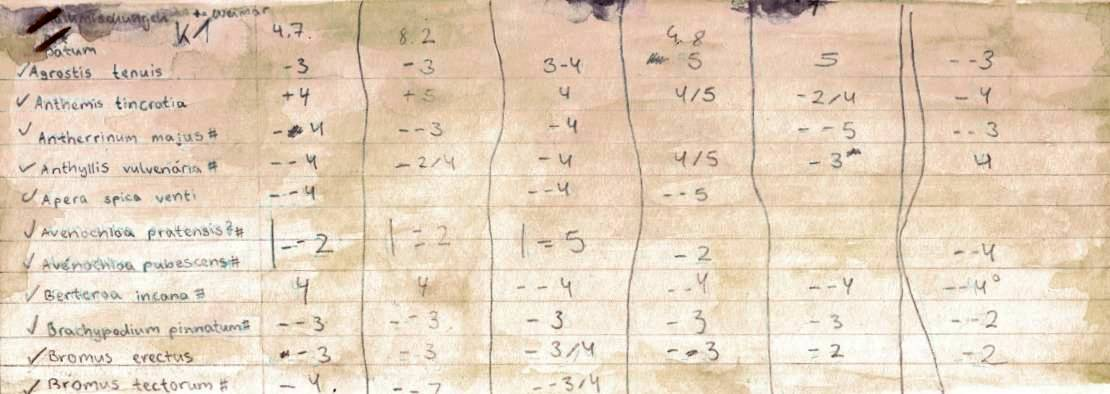 mischungen + Weimar
K1 4.7. 8.2 9.8
Datum
✓ Agrostis tenuis -3 -3 3-4 5 5 --3
✓ Anthemis tincrotia +4 +5 4 4/5 -2/4 -4
✓ Antherrinum majus # -4 --3 -4 --5 --3
✓ Anthyllis vulvenaria # --4 -2/4 -4 4/5 -3 4
✓ Apera spica venti --4 --4 --5
✓ Avenochloa pratensis?# |--2 |=2 |=5
✓ Avenochloa pubescens# -2 --4
✓ Berteroa incana # 4 4 --4 --4 --4 --4°
✓ Brachypodium pinnatum# --3 --3 -3 -3 -3 --2
✓ Bromus erectus --3 -3 -3/4 --3 -2 -2
✓ Bromus tectorum # -4. --3/4